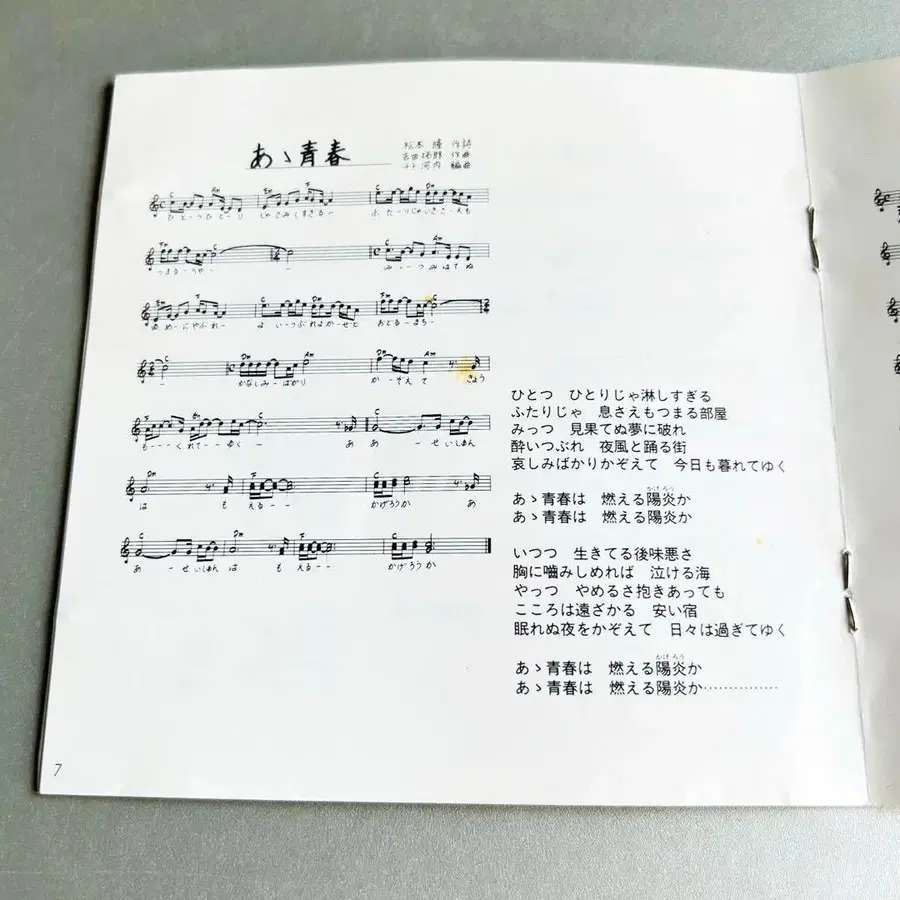 あゝ青春
松本 隆 作詩
吉田拓郎 作曲
チト河内 編曲
C Am Em F C Dm
ひとーつひとーり じゃさみしすぎるー ふーたーりじゃいきさーえも
つまるーうへやー ー みーっつみはてぬ
ゆめーにやぶれー よーいつぶれよかーぜと おどるーまちー
ー かなしみーばかり かーぞえて きょう
もーーーくれてーーゆくーー ああーせいしゅん
は もえるーー かげろうか あ
あーせいしゅんは もえるーー かげろうか
ひとつ ひとりじゃ淋しすぎる
ふたりじゃ 息さえもつまる部屋
みっつ 見果てぬ夢に破れ
酔いつぶれ 夜風と踊る街
哀しみばかりかぞえて 今日も暮れてゆく
かげろう
あゝ青春は 燃える陽炎か
あゝ青春は 燃える陽炎か
いつつ 生きてる後味悪さ
胸に嚙みしめれば 泣ける海
やっつ やめるさ抱きあっても
こころは遠ざかる 安い宿
眠れぬ夜をかぞえて 日々は過ぎてゆく
かげろう
あゝ青春は 燃える陽炎か
あゝ青春は 燃える陽炎か……………
7